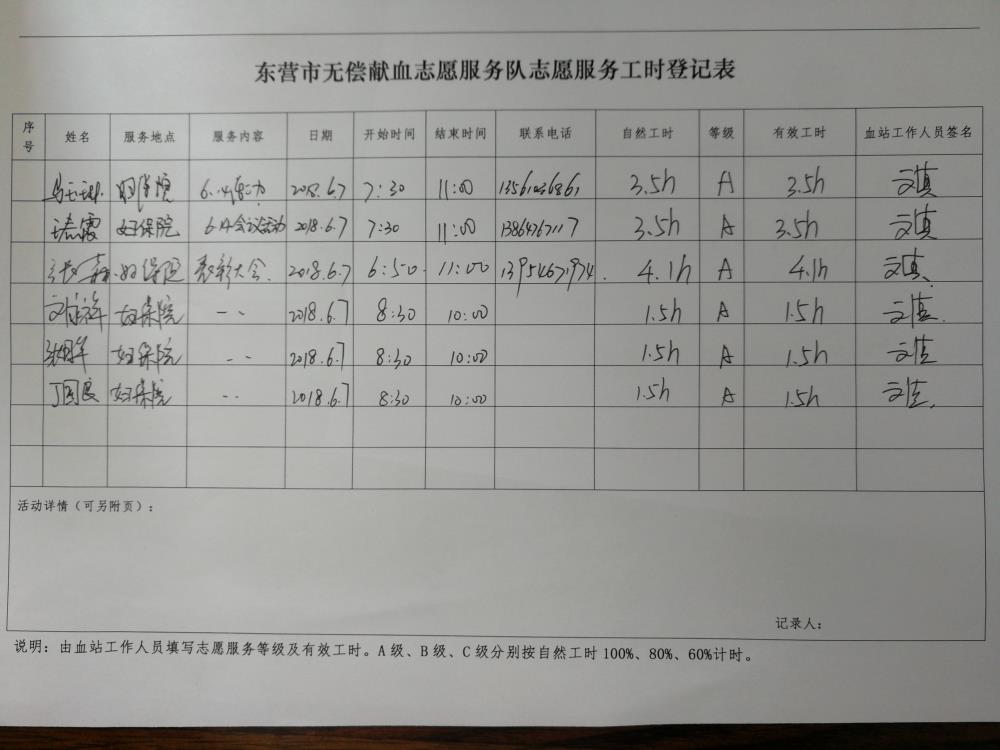 东营市无偿献血志愿服务队志愿服务工时登记表
序号 姓名 服务地点 服务内容 日期 开始时间 结束时间 联系电话 自然工时 等级 有效工时 血站工作人员签名
2018.6.7 7:30 11:00 3.5h A 3.5h
妇保院 6.14会议活动 2018.6.7 7:30 11:00 13864767117 3.5h A 3.5h
妇保院 表彰大会. 2018.6.7 6:50 11:00 13954671974. 4.1h A 4.1h
妇保院 2018.6.7 8:30 10:00 1.5h A 1.5h
妇保院 2018.6.7 8:30 10:00 1.5h A 1.5h
丁国良 妇保院 2018.6.7 8:30 10:00 1.5h A 1.5h
活动详情（可另附页）：
记录人：
说明：由血站工作人员填写志愿服务等级及有效工时。A级、B级、C级分别按自然工时100%、80%、60%计时。